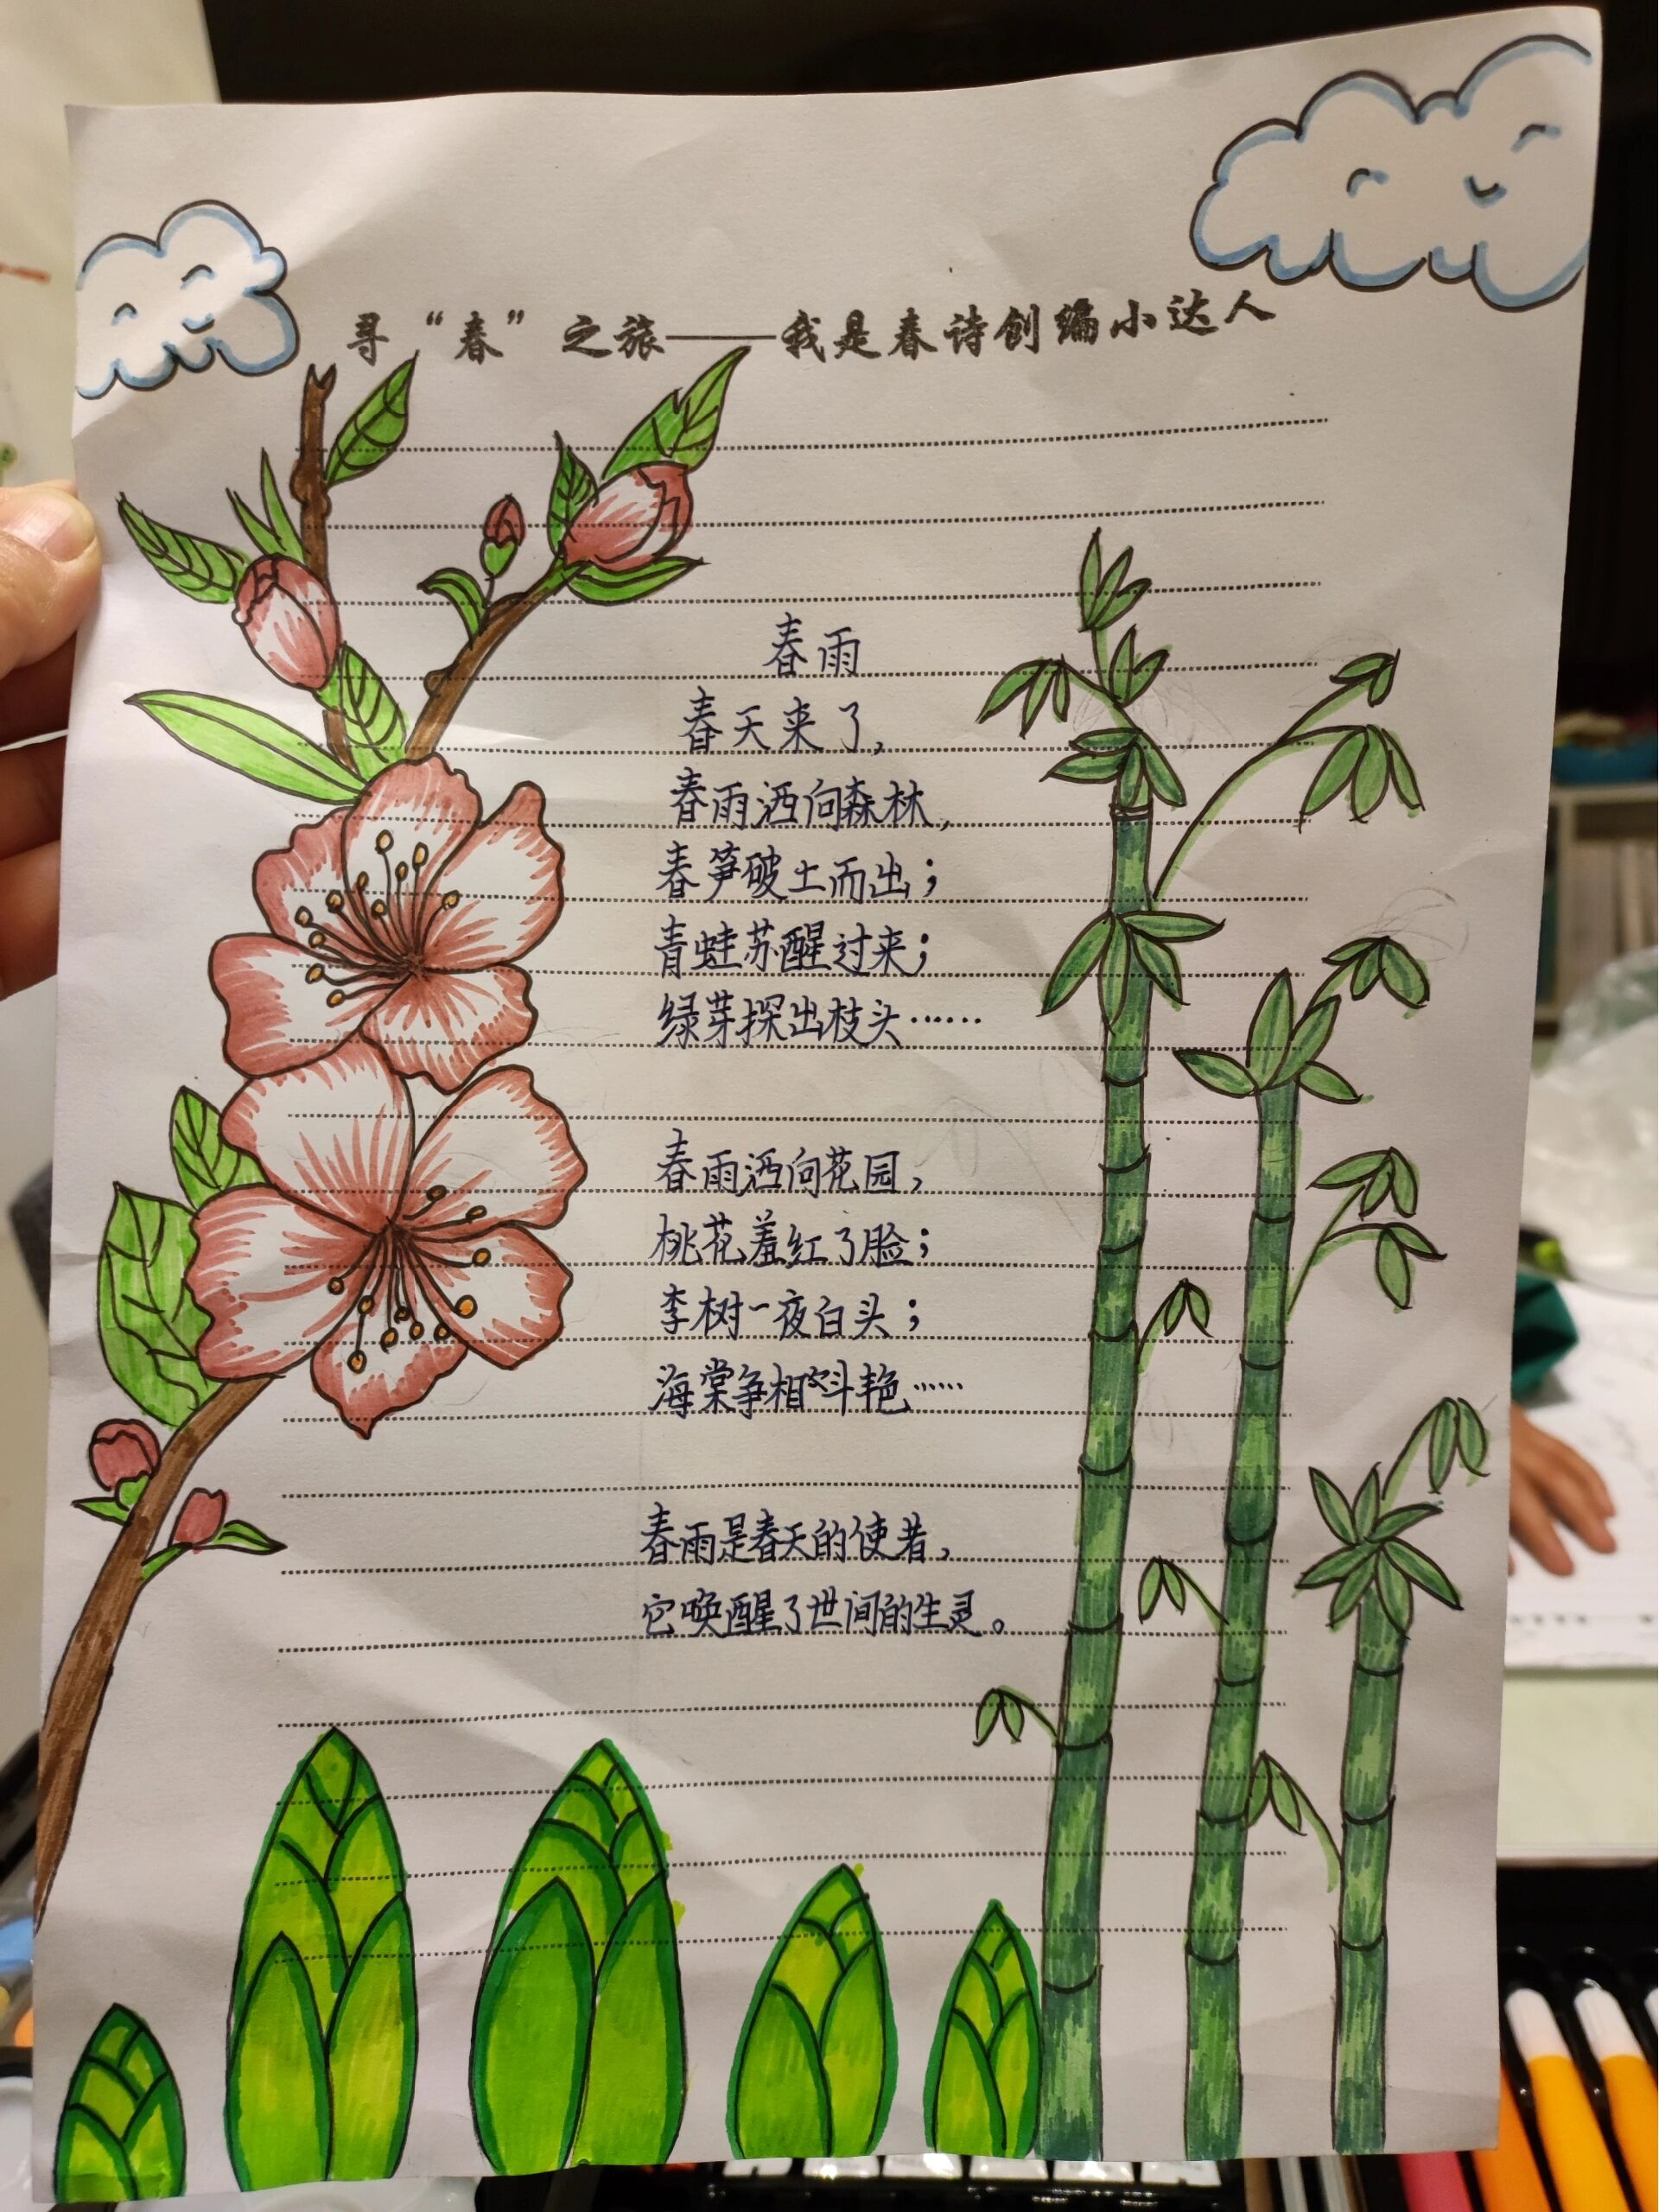 寻“春”之旅——我是春诗创编小达人
春雨
春天来了，
春雨洒向森林，
春笋破土而出；
青蛙苏醒过来；
绿芽探出枝头……
春雨洒向花园，
桃花羞红了脸；
李树一夜白头；
海棠争相斗艳……
春雨是春天的使者，
它唤醒了世间的生灵。